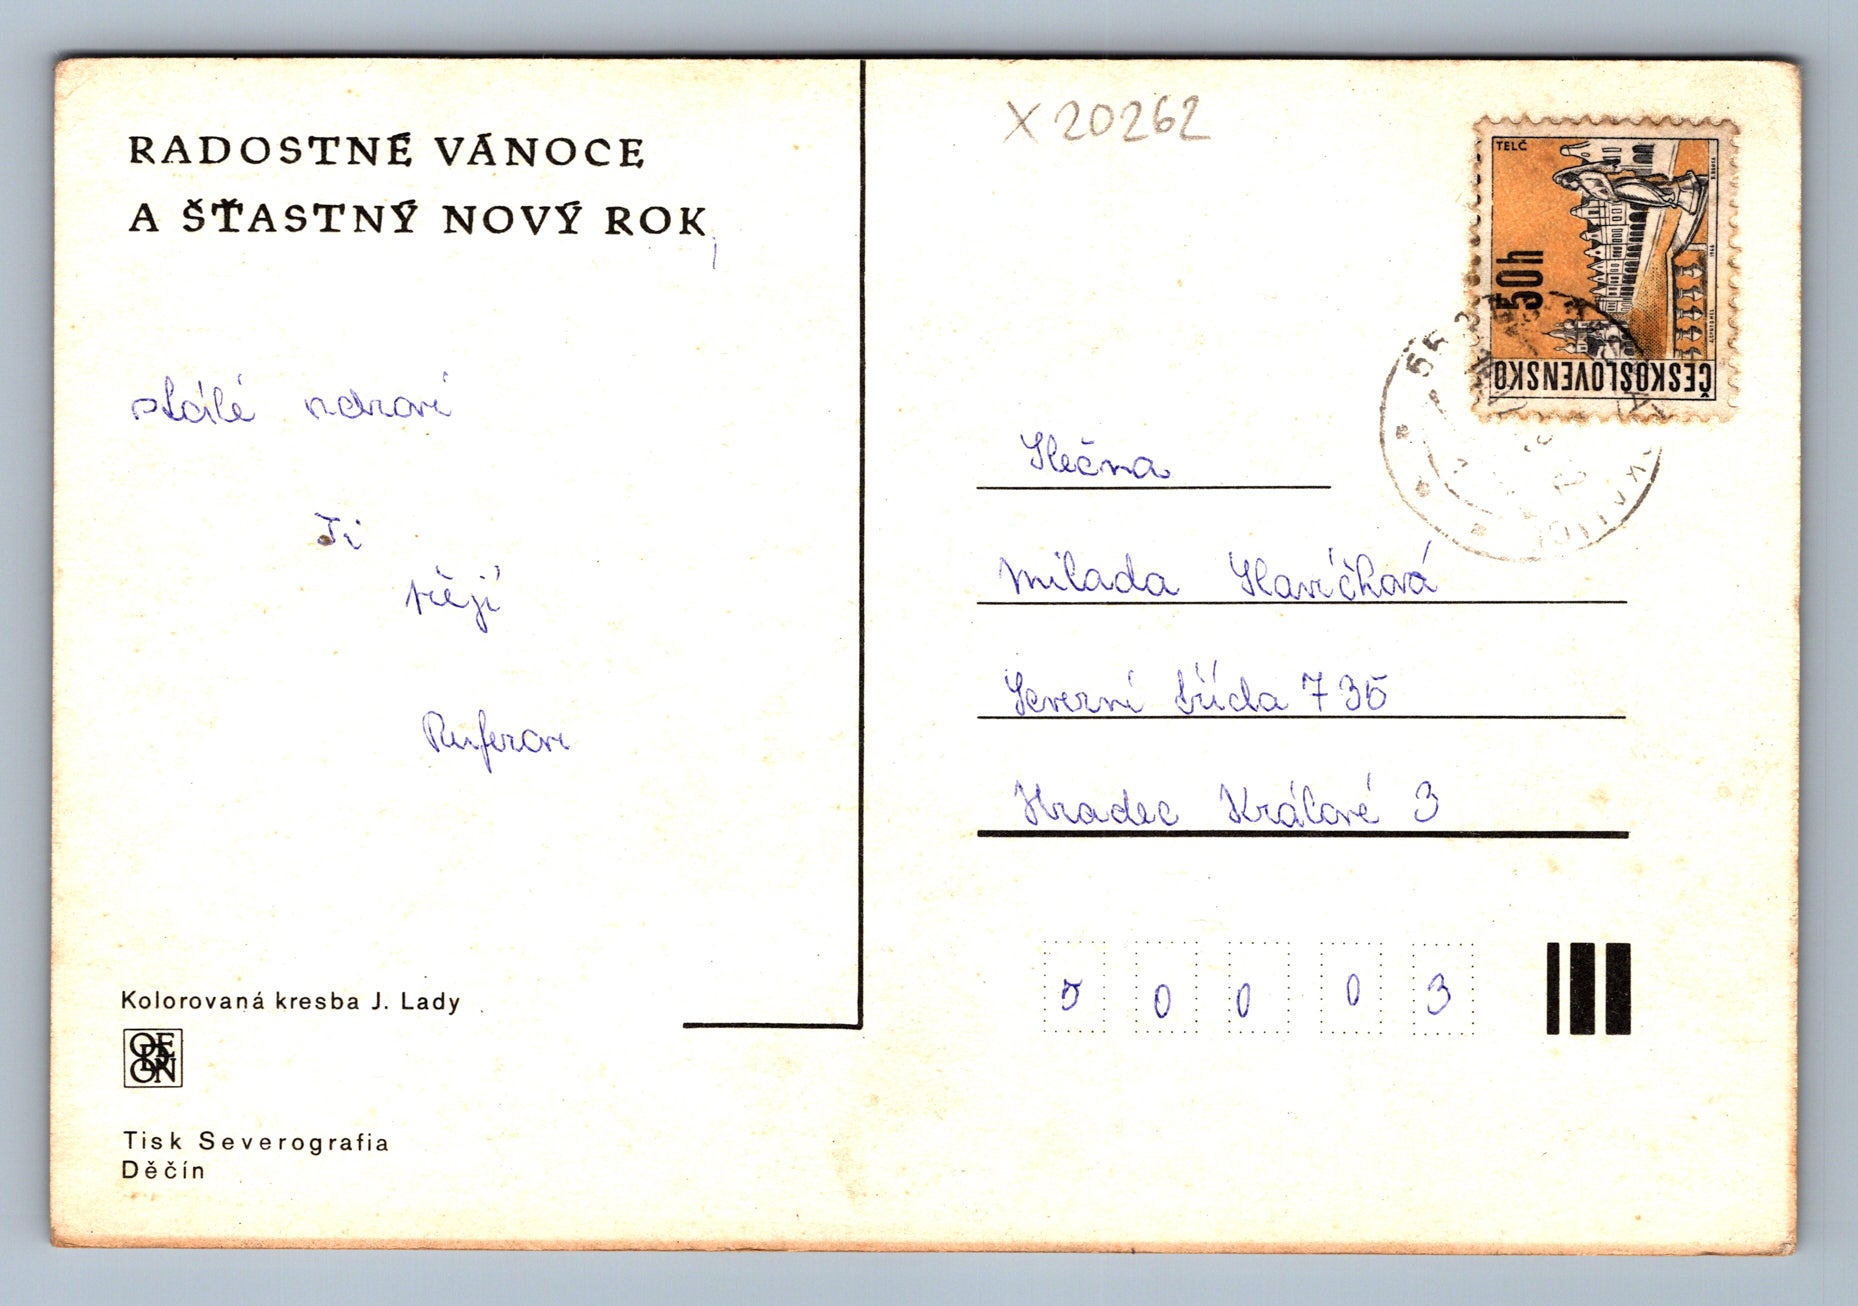 RADOSTNÉ VÁNOCE
A ŠŤASTNÝ NOVÝ ROK,
stálé zdraví
Ti
přejí
Kolorovaná kresba J. Lady
ODEON
Tisk Severografia
Děčín
X 20262
TELČ
50h
ČESKOSLOVENSKO
Slečna
Milada Slavíčková
Severní třída 735
Hradec Králové 3
5 0 0 0 3